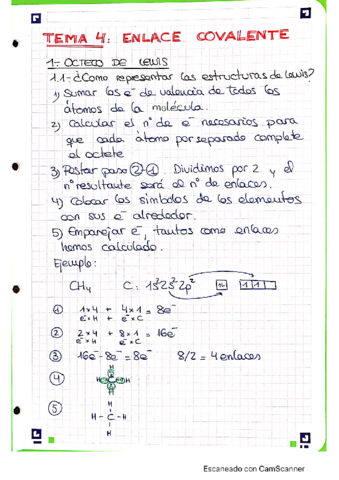 TEMA 4: ENLACE COVALENTE
1- OCTETO DE LEWIS
1.1- ¿Como representar las estructuras de Lewis?
1) Sumar los e⁻ de valencia de todos los
átomos de la molécula.
2) Calcular el nº de e⁻ necesarios para
que cada átomo por separado complete
el octete
3) Restar paso ②-①. Dividimos por 2 y el
nº resultante será el nº de enlaces.
4) Colocar los símbolos de los elementos
con sus e⁻ alrededor.
5) Emparejar e⁻, tantos como enlaces
hemos calculado.
Ejemplo:
CH₄ C: 1s²2s²2p²
① 1x4 + 4x1 = 8e⁻
e⁻xH e⁻xC
② 2x4 + 8x1 = 16e⁻
e⁻xH e⁻xC
③ 16e⁻-8e⁻=8e⁻ 8/2 = 4 enlaces
④ H C H
⑤ H
H-C-H
H
Escaneado con CamScanner